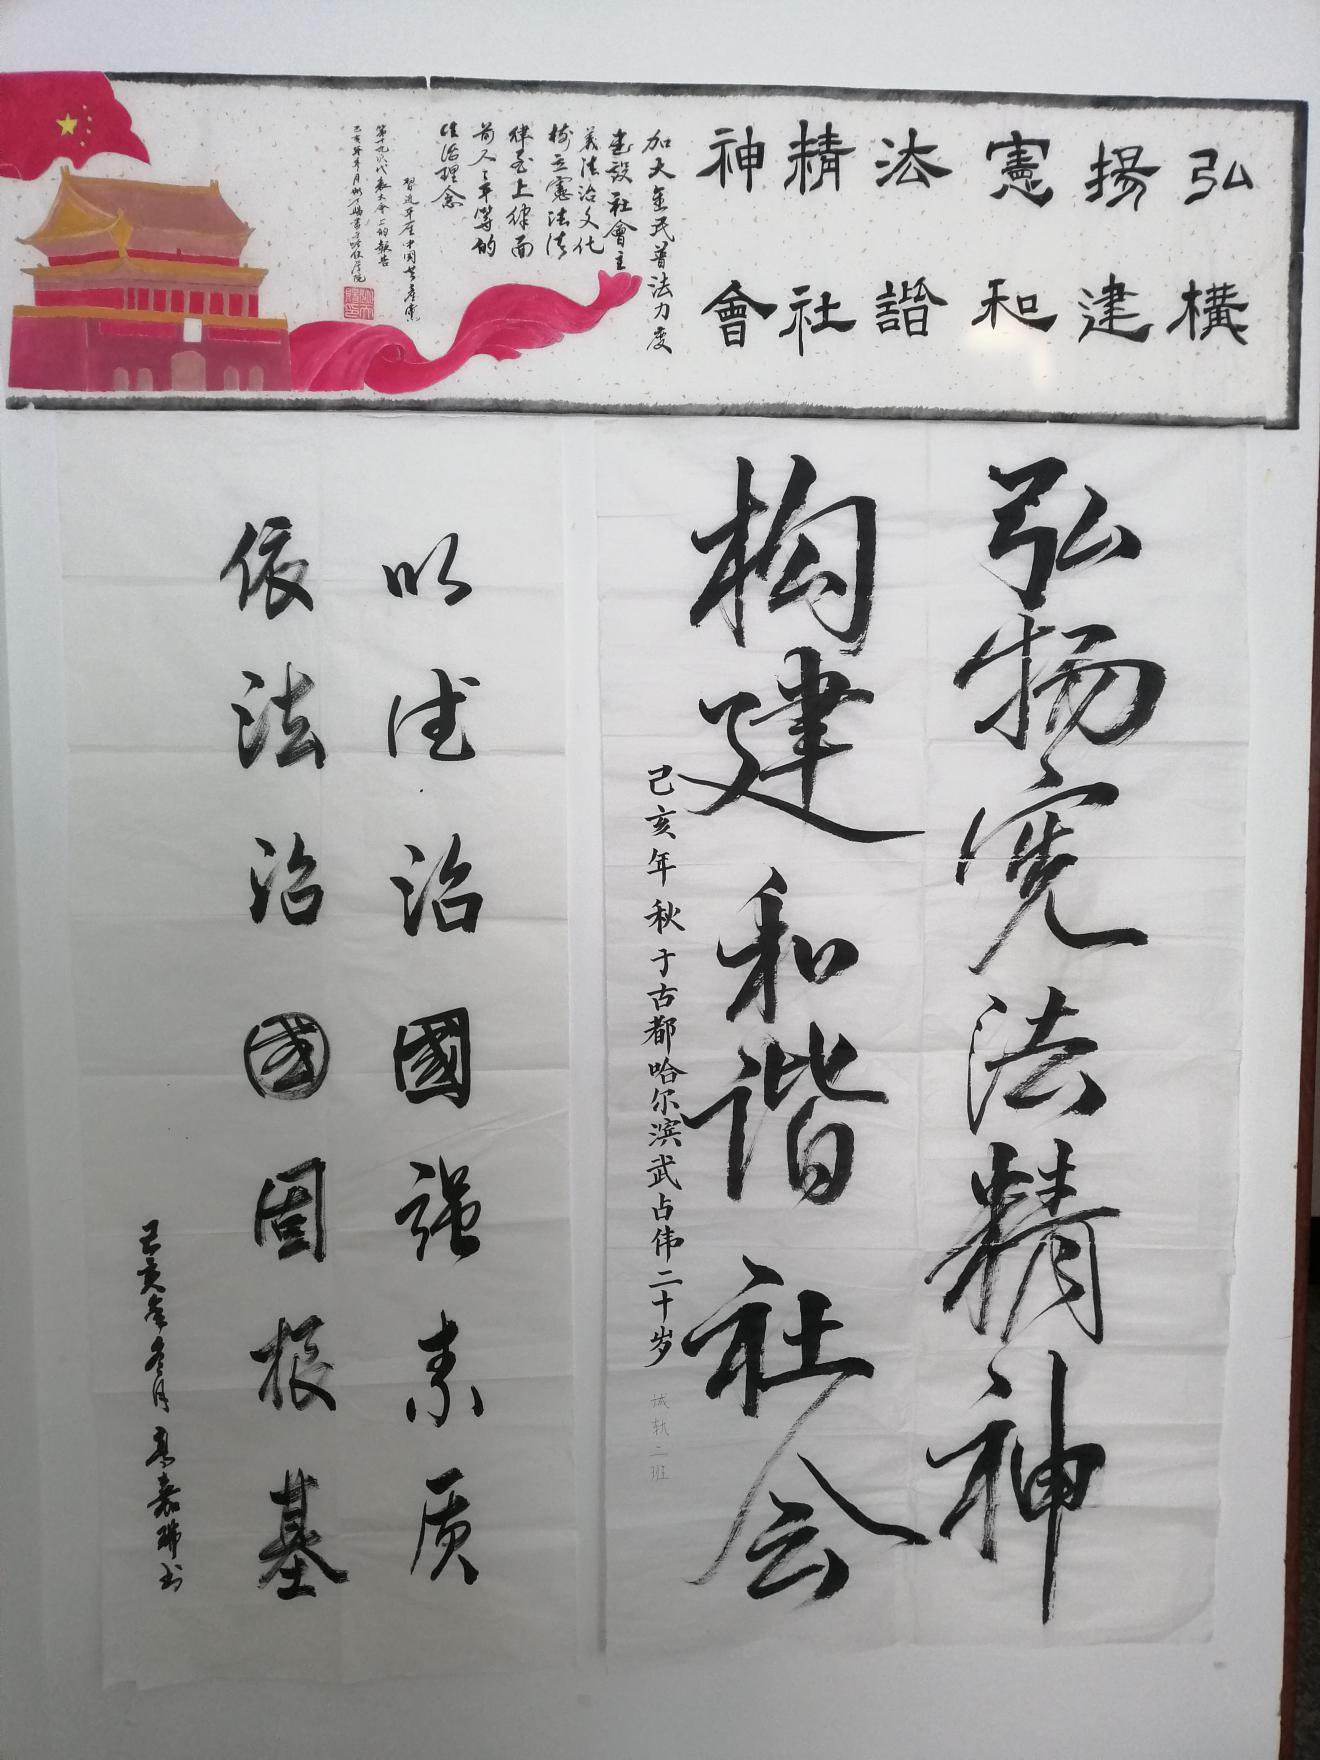 弘揚憲法精神
構建和諧社會
加大全民普法力度
建設社會主
義法治文化
树立憲法法
律至上律面
前人人平等的
法治理念
習近平在中国共産党
第十九次代表大会上的報告
弘扬宪法精神
构建和谐社会
己亥年秋于古都哈尔滨武占伟二十岁
城轨二班
以法治國强素质
依法治國固根基
己亥年冬月 嘉瑞书